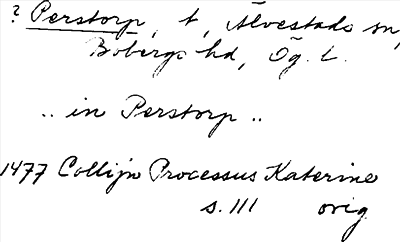 ? Perstorp, t, Älvestads sn,
Bobergs hd, Ög. l.
.. in Perstorp ..
1477 Collijn Processus Katerine
s. 111 orig